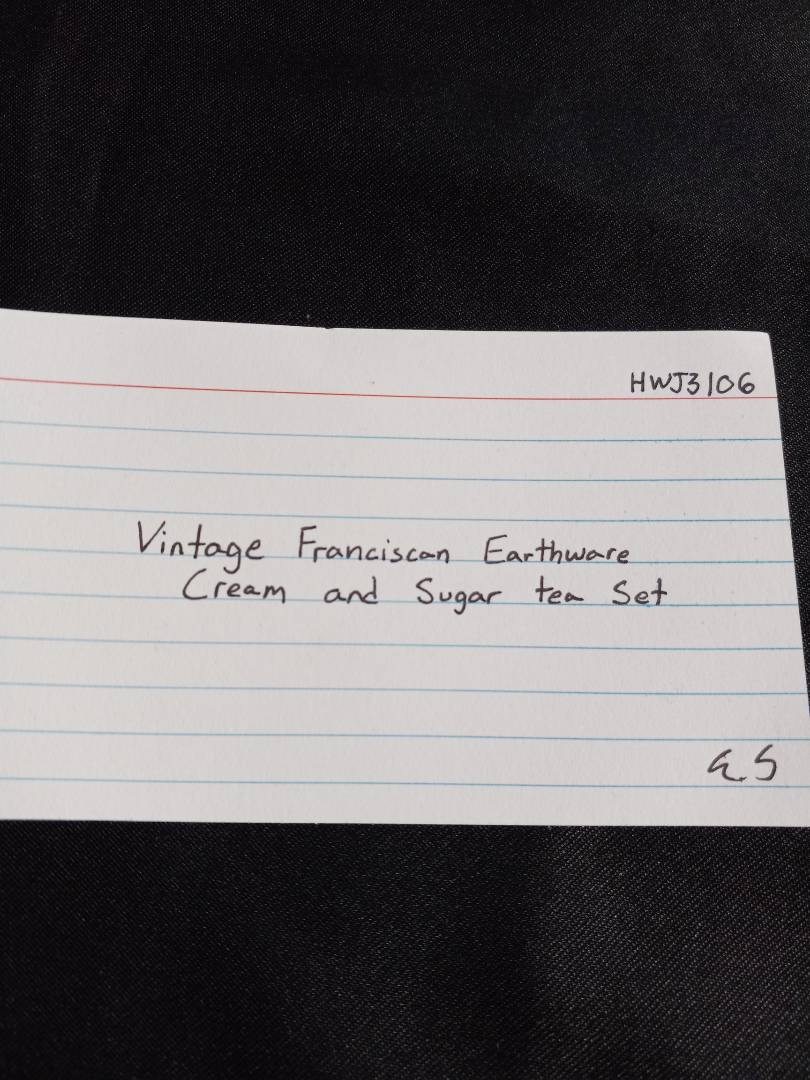 HWJ3106
Vintage Franciscan Earthware
Cream and Sugar tea Set